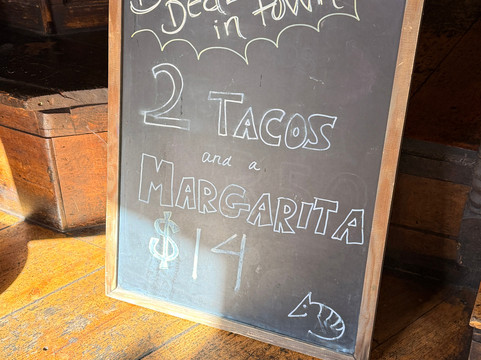 Deal
in town!
2 TACOS
and a
MARGARITA
$14